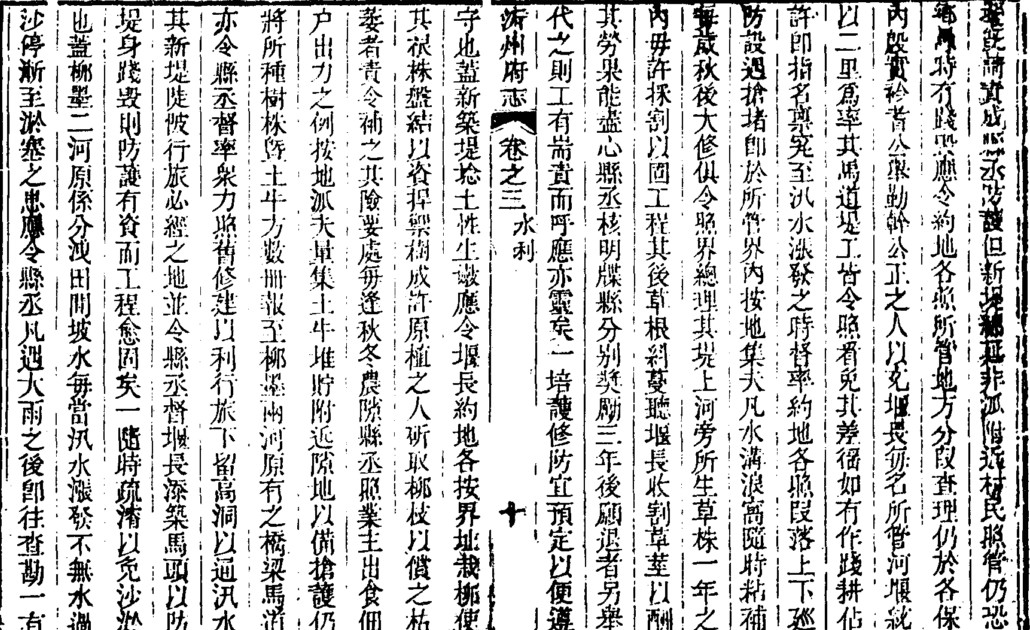 理既詩責成縣丞防護但新堤綿延非派附近村民照管仍恐
時有踐應令約地各照所管地方分段查理仍於各保
內殷實衿耆公舉勤幹公正之人以充堰長每名所管河堰統
以二里爲率其馬道堤工皆令照看免其差徭如有作踐耕佔
許卽指名稟究至汛水漲發之時督率約地各照段落上下廵
防設遇搶堵卽於所管界內按地集夫凡水溝浪窩隨時粘補
每歲秋後大修俱令照界總理其堤上河旁所生草株一年之
內毋許採割以固工程其後草根斜蔓聽堰長收割草莖以酬
其勞果能盡心縣丞核明牒縣分别奬勵三年後願退者另舉
代之則工有耑責而呼應亦靈矣一培護修防宜預定以便遵
州府志 卷之三 水利 十
守也葢新築堤埝土性生鬆應令堰長約地各按界址栽柳使
其根株盤結以資捍禦樹成許原植之人斫取柳枝以償之枯
萎者責令補之其險要處每逢秋冬農隙縣丞照業主出食佃
户出力之例按地派夫量集土牛堆貯附近隙地以備搶護仍
將所種樹株曁土牛方數册報至柳墨兩河原有之橋梁馬道
亦令縣丞督率衆力照舊修建以利行旅下留高洞以通汛水
其新堤陡陂行旅必經之地並令縣丞督堰長添築馬頭以防
堤身踐毁則防護有資而工程愈固矣一隨時疏濬以免沙淤
也葢柳墨二河原係分洩田間坡水每當汛水漲發不無水過
沙停漸至淤塞之患應令縣丞凡遇大雨之後卽往查勘一有